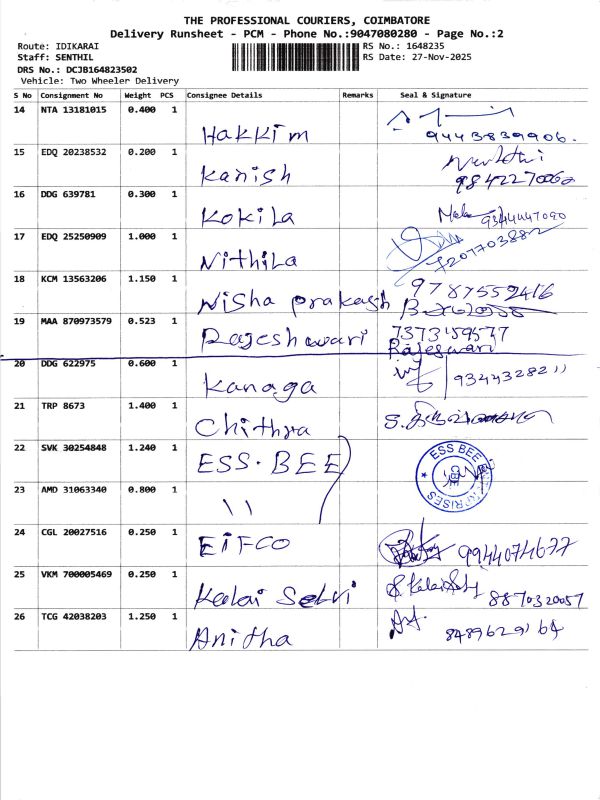 THE PROFESSIONAL COURIERS, COIMBATORE
Delivery Runsheet - PCM - Phone No.:9047080280 - Page No.:2
Route: IDIKARAI
RS No.: 1648235
Staff: SENTHIL
RS Date: 27-Nov-2025
DRS No.: DCJB164823502
Vehicle: Two Wheeler Delivery
S No Consignment No Weight PCS Consignee Details Remarks Seal & Signature
14 NTA 13181015 0.400 1 Hakkim 9443839906.
15 EDQ 20238532 0.200 1 Kanish
16 DDG 639781 0.300 1 Kokila Mala 9344447090
17 EDQ 25250909 1.000 1 Nithila
18 KCM 13563206 1.150 1 Nisha prakash 9787552416
19 MAA 870973579 0.523 1 Rajeshwari 7373159577
Rajeswari
20 DDG 622975 0.600 1 Kanaga
21 TRP 8673 1.400 1 Chithra
22 SVK 30254848 1.240 1 ESS. BEE ESS BEE ENTERPRISES CBE
23 AMD 31063340 0.800 1 \\
24 CGL 20027516 0.250 1 EIFCO 9944074677
25 VKM 700005469 0.250 1 Kalai Selvi 8870320057
26 TCG 42038203 1.250 1 Anitha 8489629164